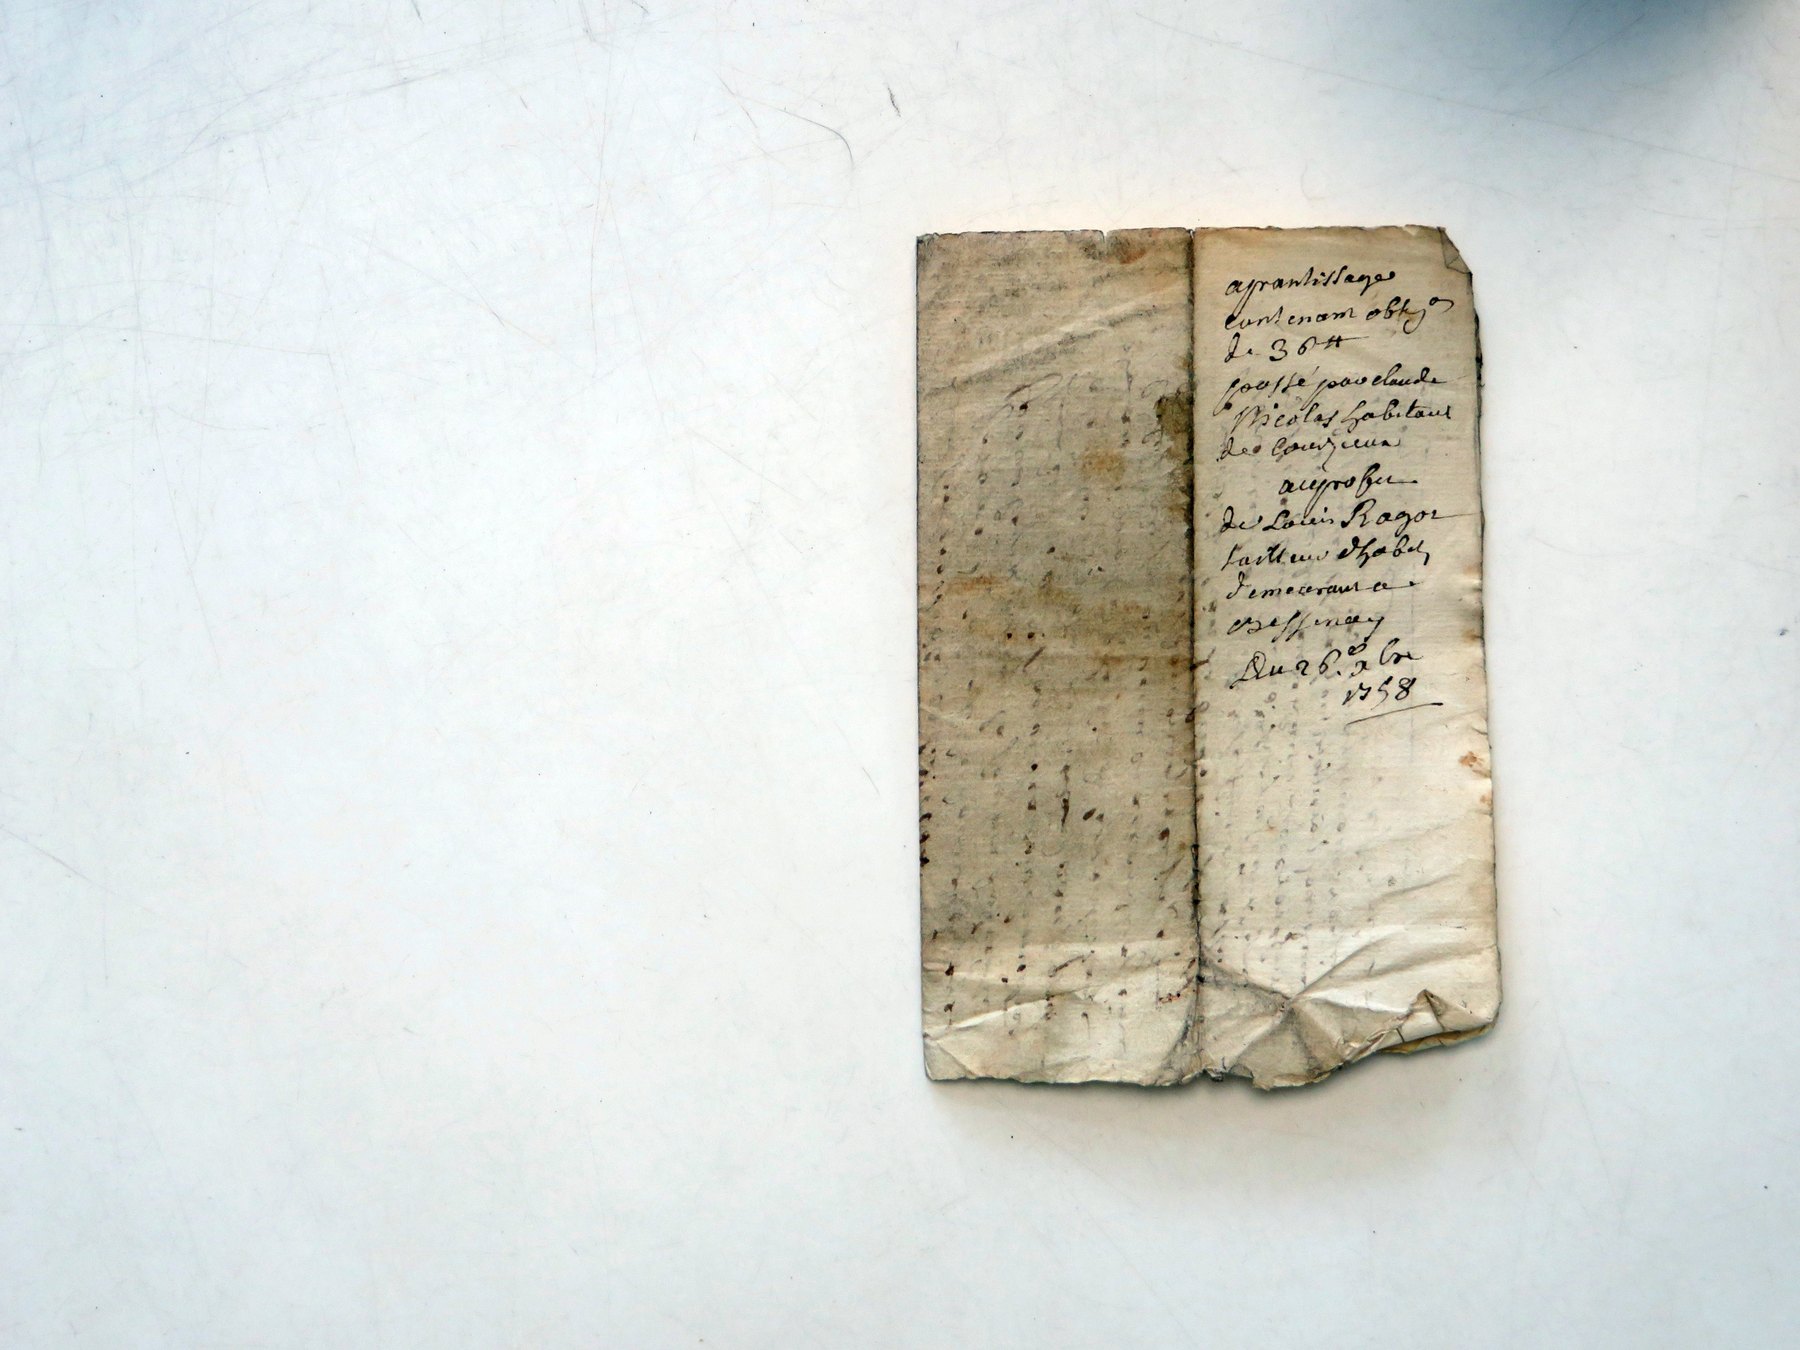 aprantissage
contenant oblig.on
de 36 ₶
passé par claude
Nicolas habitant
de Courzieux
au profit
de Louis Ragot
tailleur d'habits
demeurant a
Bessenay
Du 26.e xbre
1758